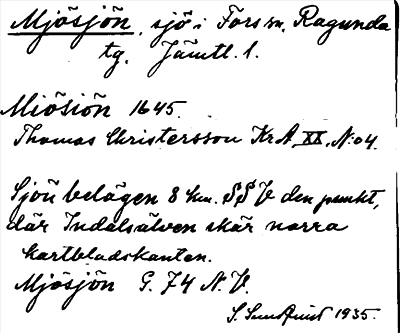 Mjösjön, sjö i Fors sn, Ragunda
tg. Jämtl. l.
Miösiön 1645.
Thomas Christersson KrA, XX, N:o 4.
Sjön belägen 8 km. SSV den punkt,
där Indalsälven skär norra
kartbladskanten.
Mjösjön G. 74 N.V.
S. Sundquist 1935.